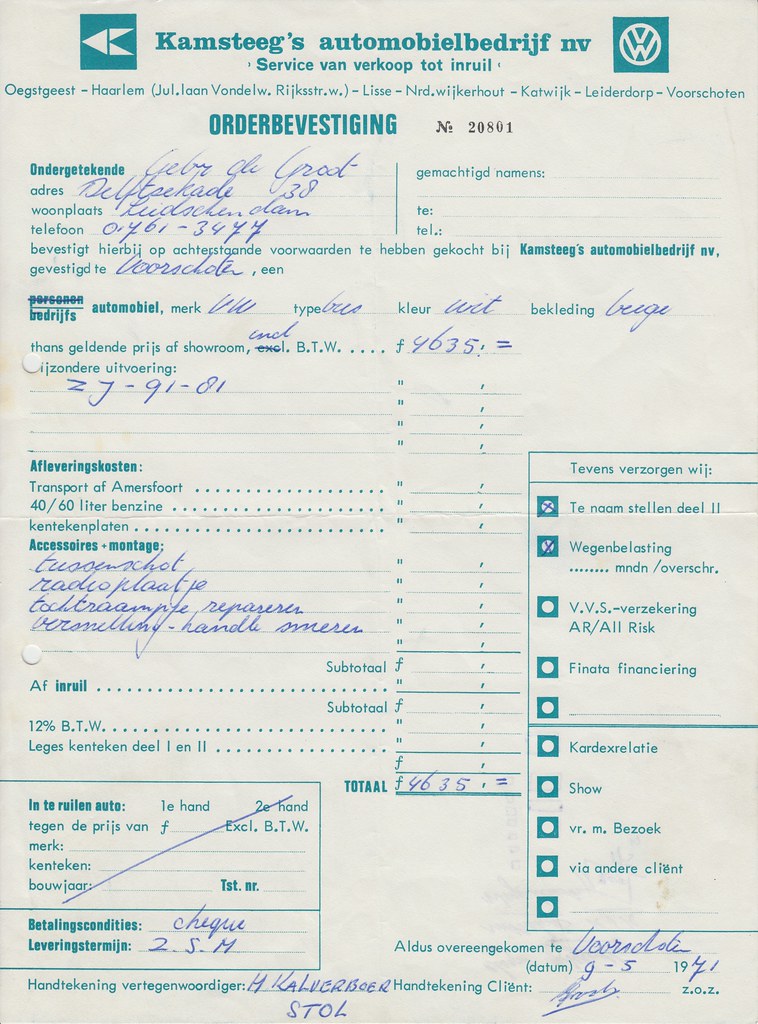 Kamsteeg's automobielbedrijf nv
› Service van verkoop tot inruil ‹
Oegstgeest – Haarlem (Jul.laan Vondelw. Rijksstr.w.) – Lisse – Nrd.wijkerhout – Katwijk – Leiderdorp – Voorschoten
ORDERBEVESTIGING № 20801
Ondergetekende Gebr de Groot
adres Delftsekade 38
woonplaats Leidschendam
telefoon 01761-3477
gemachtigd namens:
te:
tel.:
bevestigt hierbij op achterstaande voorwaarden te hebben gekocht bij Kamsteeg's automobielbedrijf nv,
gevestigd te Voorschoten, een
personen
bedrijfs automobiel, merk VW type bus kleur wit bekleding beige
incl
thans geldende prijs af showroom, excl. B.T.W. ..... f 4635,=
ijzondere uitvoering:
ZJ-91-01
Afleveringskosten:
Transport af Amersfoort
40/60 liter benzine
kentekenplaten
Accessoires + montage:
tussenschot
radioplaatje
tochtraampje repareren
versnelling-handle smeren
Subtotaal f
Af inruil
Subtotaal f
12% B.T.W.
Leges kenteken deel I en II
f
TOTAAL f 4635,=
Tevens verzorgen wij:
Te naam stellen deel II
Wegenbelasting
........ mndn /overschr.
V.V.S.-verzekering
AR/All Risk
Finata financiering
Kardexrelatie
Show
vr. m. Bezoek
via andere cliënt
In te ruilen auto: 1e hand 2e hand
tegen de prijs van f Excl. B.T.W.
merk:
kenteken:
bouwjaar: Tst. nr.
Betalingscondities: cheque
Leveringstermijn: Z.S.M
Aldus overeengekomen te Voorschoten
(datum) 9-5 1971
Handtekening vertegenwoordiger: H KALVERBOER
STOL
Handtekening Cliënt: z.o.z.